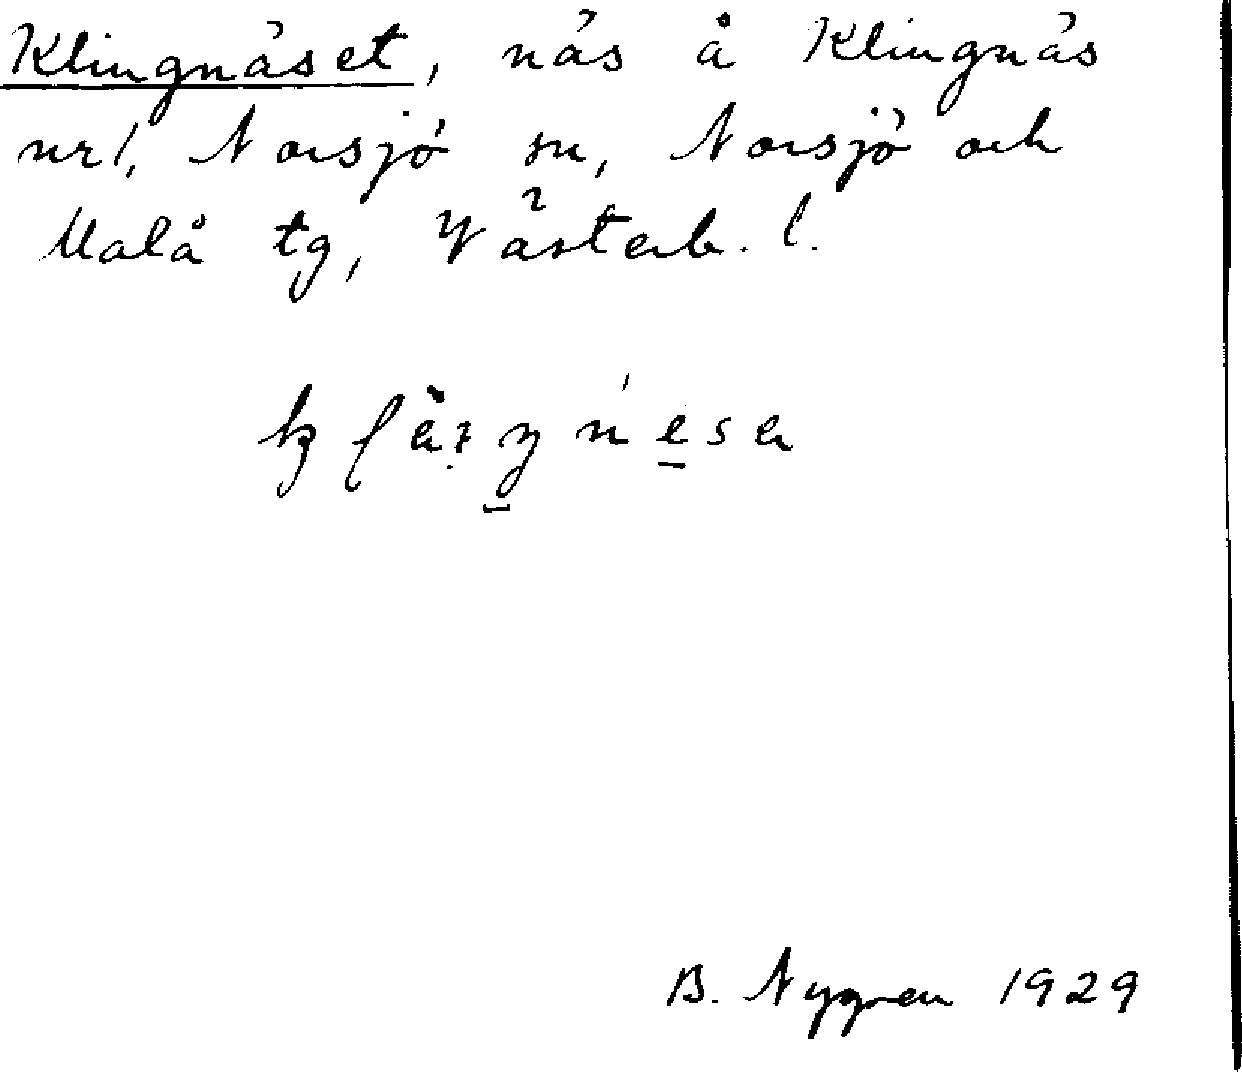 Klingnäset, näs å Klingnäs
nr 1, Norsjö sn, Norsjö och
Malå tg, Västerb. l.
B. Nygren 1929